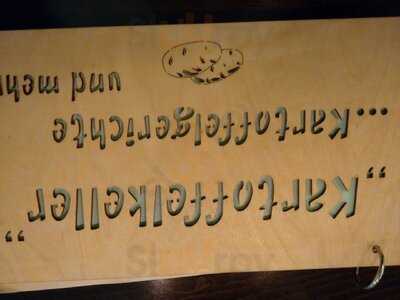 „Kartoffelkeller"
...Kartoffelgerichte
und mehr